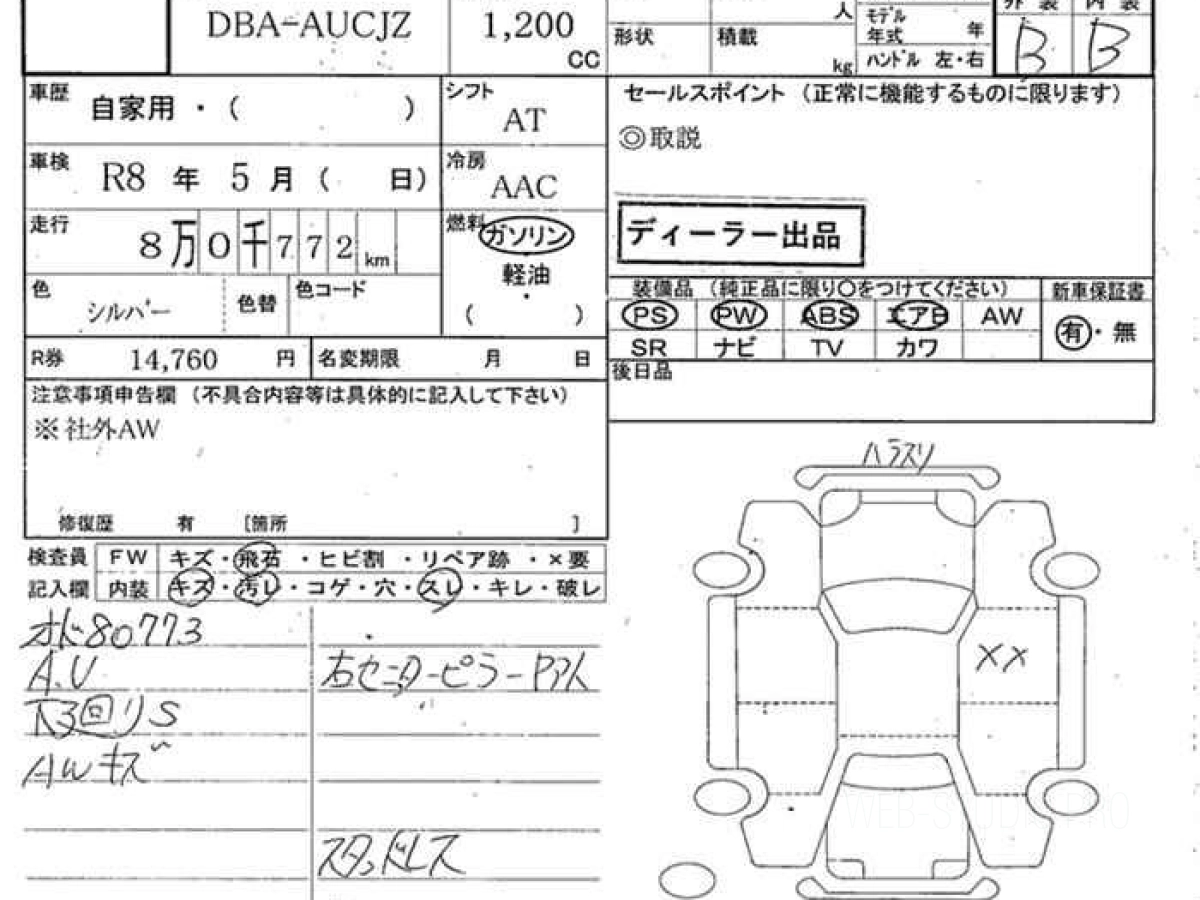 DBA-AUCJZ
1,200
CC
人
モデル
年式 年
外装 内装
B B
形状
積載
kg
ハンドル 左・右
車歴 自家用・( )
シフト
AT
セールスポイント (正常に機能するものに限ります)
◎取説
車検 R8 年 5 月 ( 日)
冷房
AAC
走行
8万0千772 km
燃料 ガソリン
軽油
( )
ディーラー出品
色
シルバー
色替
色コード
装備品 (純正品に限り○をつけてください)
新車保証書
PS PW ABS エアB AW
有・無
SR ナビ TV カワ
R券 14,760 円
名変期限 月 日
後日品
注意事項申告欄 (不具合内容等は具体的に記入して下さい)
※社外AW
修復歴 有 [箇所 ]
検査員
記入欄
FW キズ・飛石・ヒビ割・リペア跡・×要
内装 キズ・汚レ・コゲ・穴・スレ・キレ・破レ
オド80773
A.U
下回りS
AWキズ
右センターピラー
スタッドレス
ハラスリ
XX